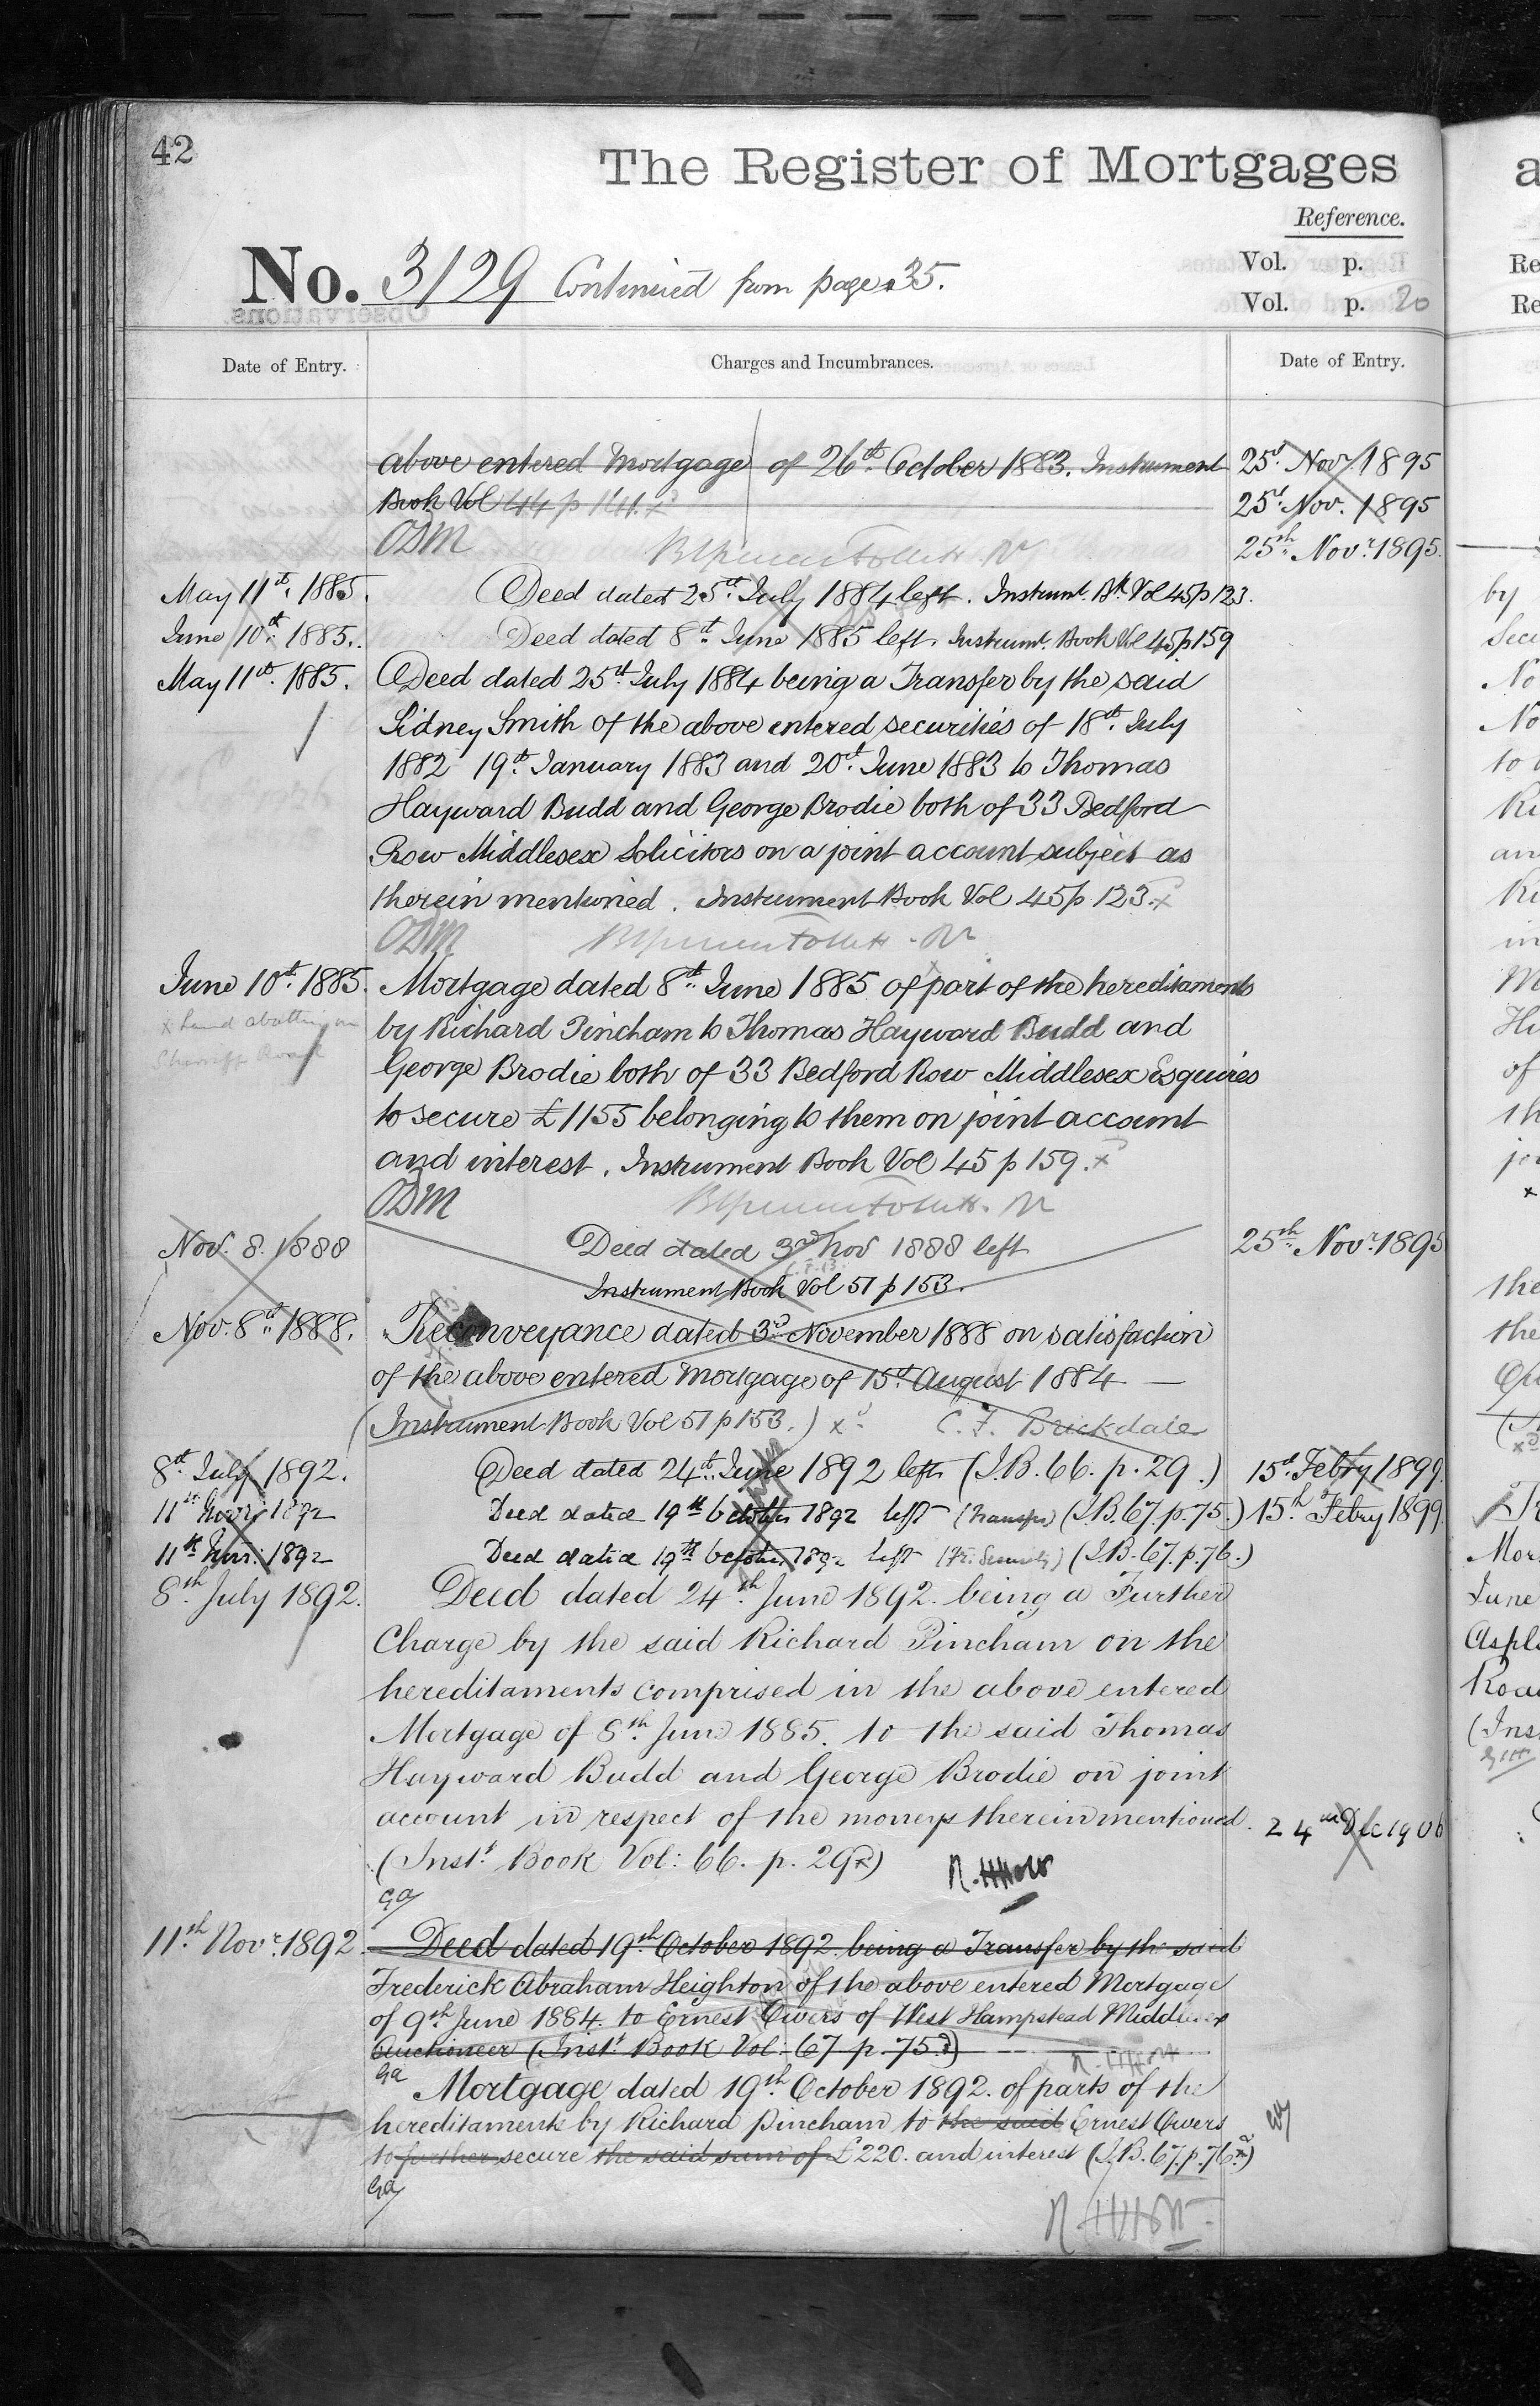 42
The Register of Mortgages
Reference.
No. 3129 Continued from page 35.
Vol. p.
Vol. p. 20
Date of Entry. Charges and Incumbrances. Date of Entry.
above entered Mortgage of 26th October 1883. Instrument 25th Novr 1895
Book Vol 44 p 141. 25th Nov. 1895
ODM 25th Novr 1895.
May 11th 1885. Deed dated 25th July 1884 left. Instrumt. Bk. Vol 45 p 123.
June 10th 1885. Deed dated 8th June 1885 left. Instrumt. Book Vol 45 p 159
May 11th 1885. Deed dated 25th July 1884 being a Transfer by the said
Sidney Smith of the above entered securities of 18th July
1882 19th January 1883 and 20th June 1883 to Thomas
Hayward Budd and George Brodie both of 33 Bedford
Row Middlesex Solicitors on a joint account subject as
therein mentioned. Instrument Book Vol 45 p 123. x
ODM
June 10th 1885. Mortgage dated 8th June 1885 of part of the hereditaments
x Land abutting on by Richard Pincham to Thomas Hayward Budd and
George Brodie both of 33 Bedford Row Middlesex Esquires
to secure £1155 belonging to them on joint account
and interest. Instrument Book Vol 45 p 159. x
ODM
Nov. 8. 1888 Deed dated 3rd Nov 1888 left 25th Novr 1895
Instrument Book Vol 51 p 153.
Nov. 8th 1888. Reconveyance dated 3d November 1888 on satisfaction
of the above entered Mortgage of 15th August 1884 —
(Instrument Book Vol 51 p 153.) x C. F. Brickdale
8th July 1892. Deed dated 24th June 1892 left (I.B. 66. p. 29.) 15th Febry 1899.
11th Novr: 1892 Deed dated 19th October 1892 left (Transfer) (I.B. 67. p. 75.) 15th Febry 1899
11th Novr: 1892 Deed dated 19th October 1892 left (I.B. 67. p. 76.)
8th July 1892. Deed dated 24th June 1892. being a Further
Charge by the said Richard Pincham on the
hereditaments comprised in the above entered
Mortgage of 8th June 1885. to the said Thomas
Hayward Budd and George Brodie on joint
account in respect of the moneys therein mentioned. 24th Dec 1906
(Inst. Book Vol: 66. p. 29)
ga
11th Novr 1892 Deed dated 19th October 1892 being a Transfer by the said
Frederick Abraham Heighton of the above entered Mortgage
of 9th June 1884. to Ernest Owers of West Hampstead Middlesex
Auctioneer (Inst. Book Vol: 67 p. 75)
ga
Mortgage dated 19th October 1892. of parts of the
hereditaments by Richard Pincham to the said Ernest Owers
to further secure the said sum of £220. and interest (I.B. 67. p. 76.)
ga